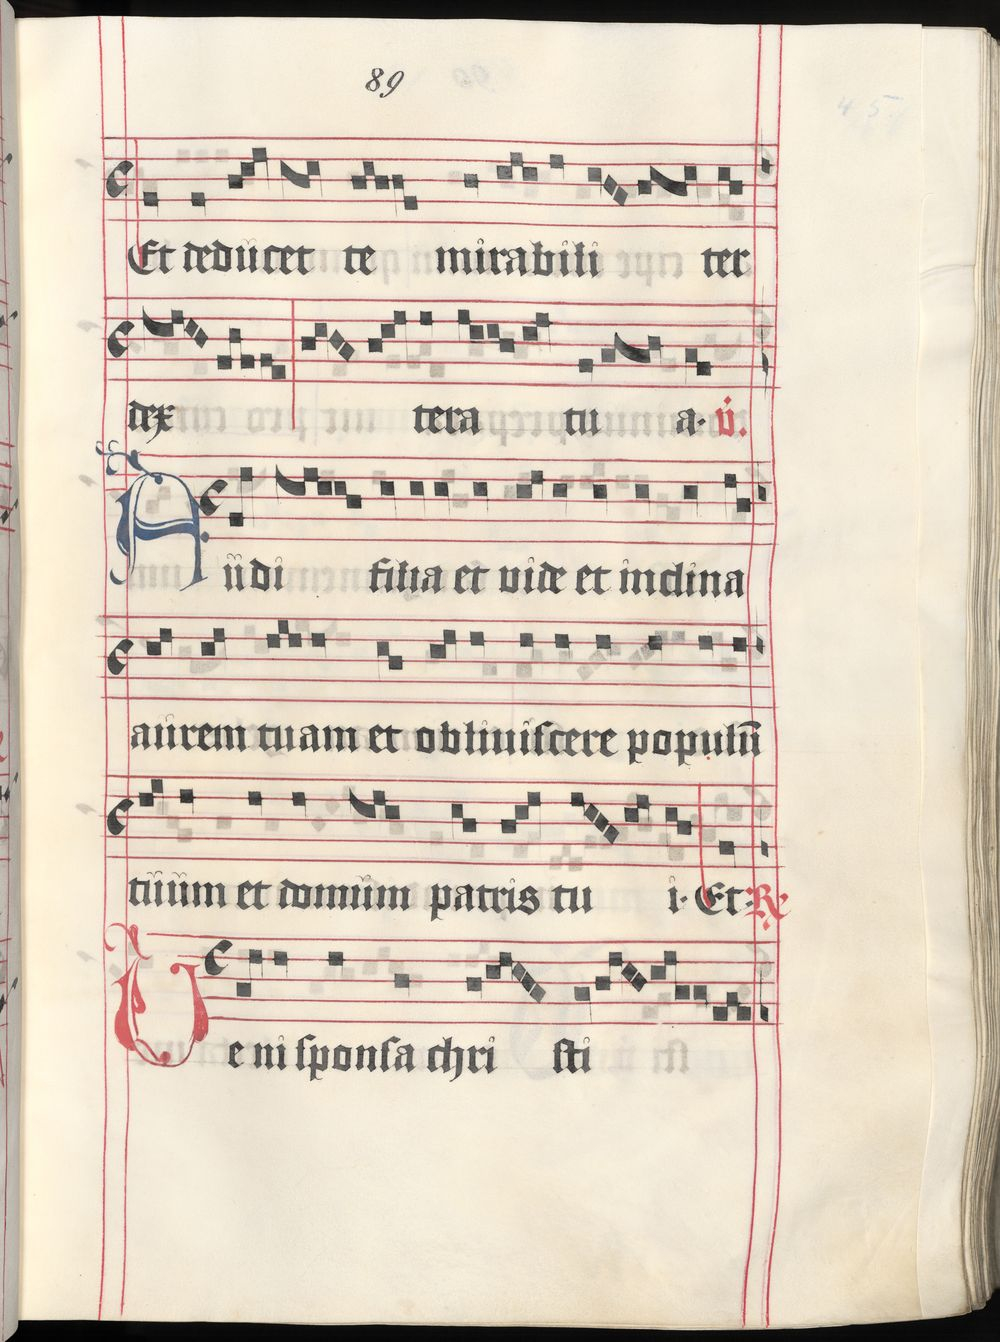 89
Et dedücet te mirabili ter
dex tera tu a. v̇.
Aüdi filia et vide et inclina
aürem tuam et obliuiscere populū
tüüm et domüm patris tu i. Et. ℟
Veni sponsa chri sti